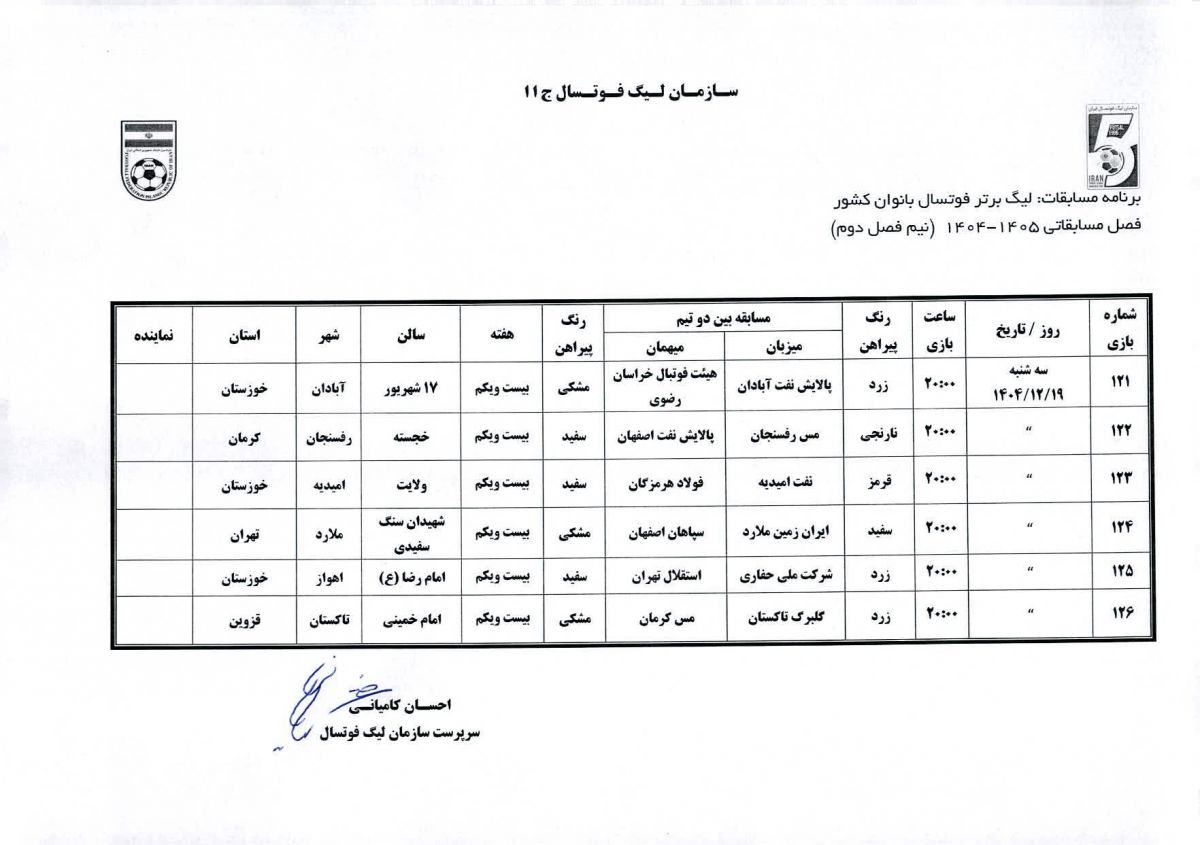 سازمان لیگ فوتسال ج ۱۱
سازمان لیگ فوتسال ایران
FUTSAL
IRAN
برنامه مسابقات: لیگ برتر فوتسال بانوان کشور
فصل مسابقاتی ۱۴۰۵-۱۴۰۴ (نیم فصل دوم)
شماره بازی | روز / تاریخ | ساعت بازی | رنگ پیراهن | مسابقه بین دو تیم | رنگ پیراهن | هفته | سالن | شهر | استان | نماینده
میزبان | میهمان
۱۲۱ | سه شنبه ۱۴۰۴/۱۲/۱۹ | ۲۰:۰۰ | زرد | پالایش نفت آبادان | هیئت فوتبال خراسان رضوی | مشکی | بیست ویکم | ۱۷ شهریور | آبادان | خوزستان
۱۲۲ | " | ۲۰:۰۰ | نارنجی | مس رفسنجان | پالایش نفت اصفهان | سفید | بیست ویکم | خجسته | رفسنجان | کرمان
۱۲۳ | " | ۲۰:۰۰ | قرمز | نفت امیدیه | فولاد هرمزگان | سفید | بیست ویکم | ولایت | امیدیه | خوزستان
۱۲۴ | " | ۲۰:۰۰ | سفید | ایران زمین ملارد | سپاهان اصفهان | مشکی | بیست ویکم | شهیدان سنگ سفیدی | ملارد | تهران
۱۲۵ | " | ۲۰:۰۰ | زرد | شرکت ملی حفاری | استقلال تهران | سفید | بیست ویکم | امام رضا (ع) | اهواز | خوزستان
۱۲۶ | " | ۲۰:۰۰ | زرد | گلبرگ تاکستان | مس کرمان | مشکی | بیست ویکم | امام خمینی | تاکستان | قزوین
احسان کامیانی
سرپرست سازمان لیگ فوتسال